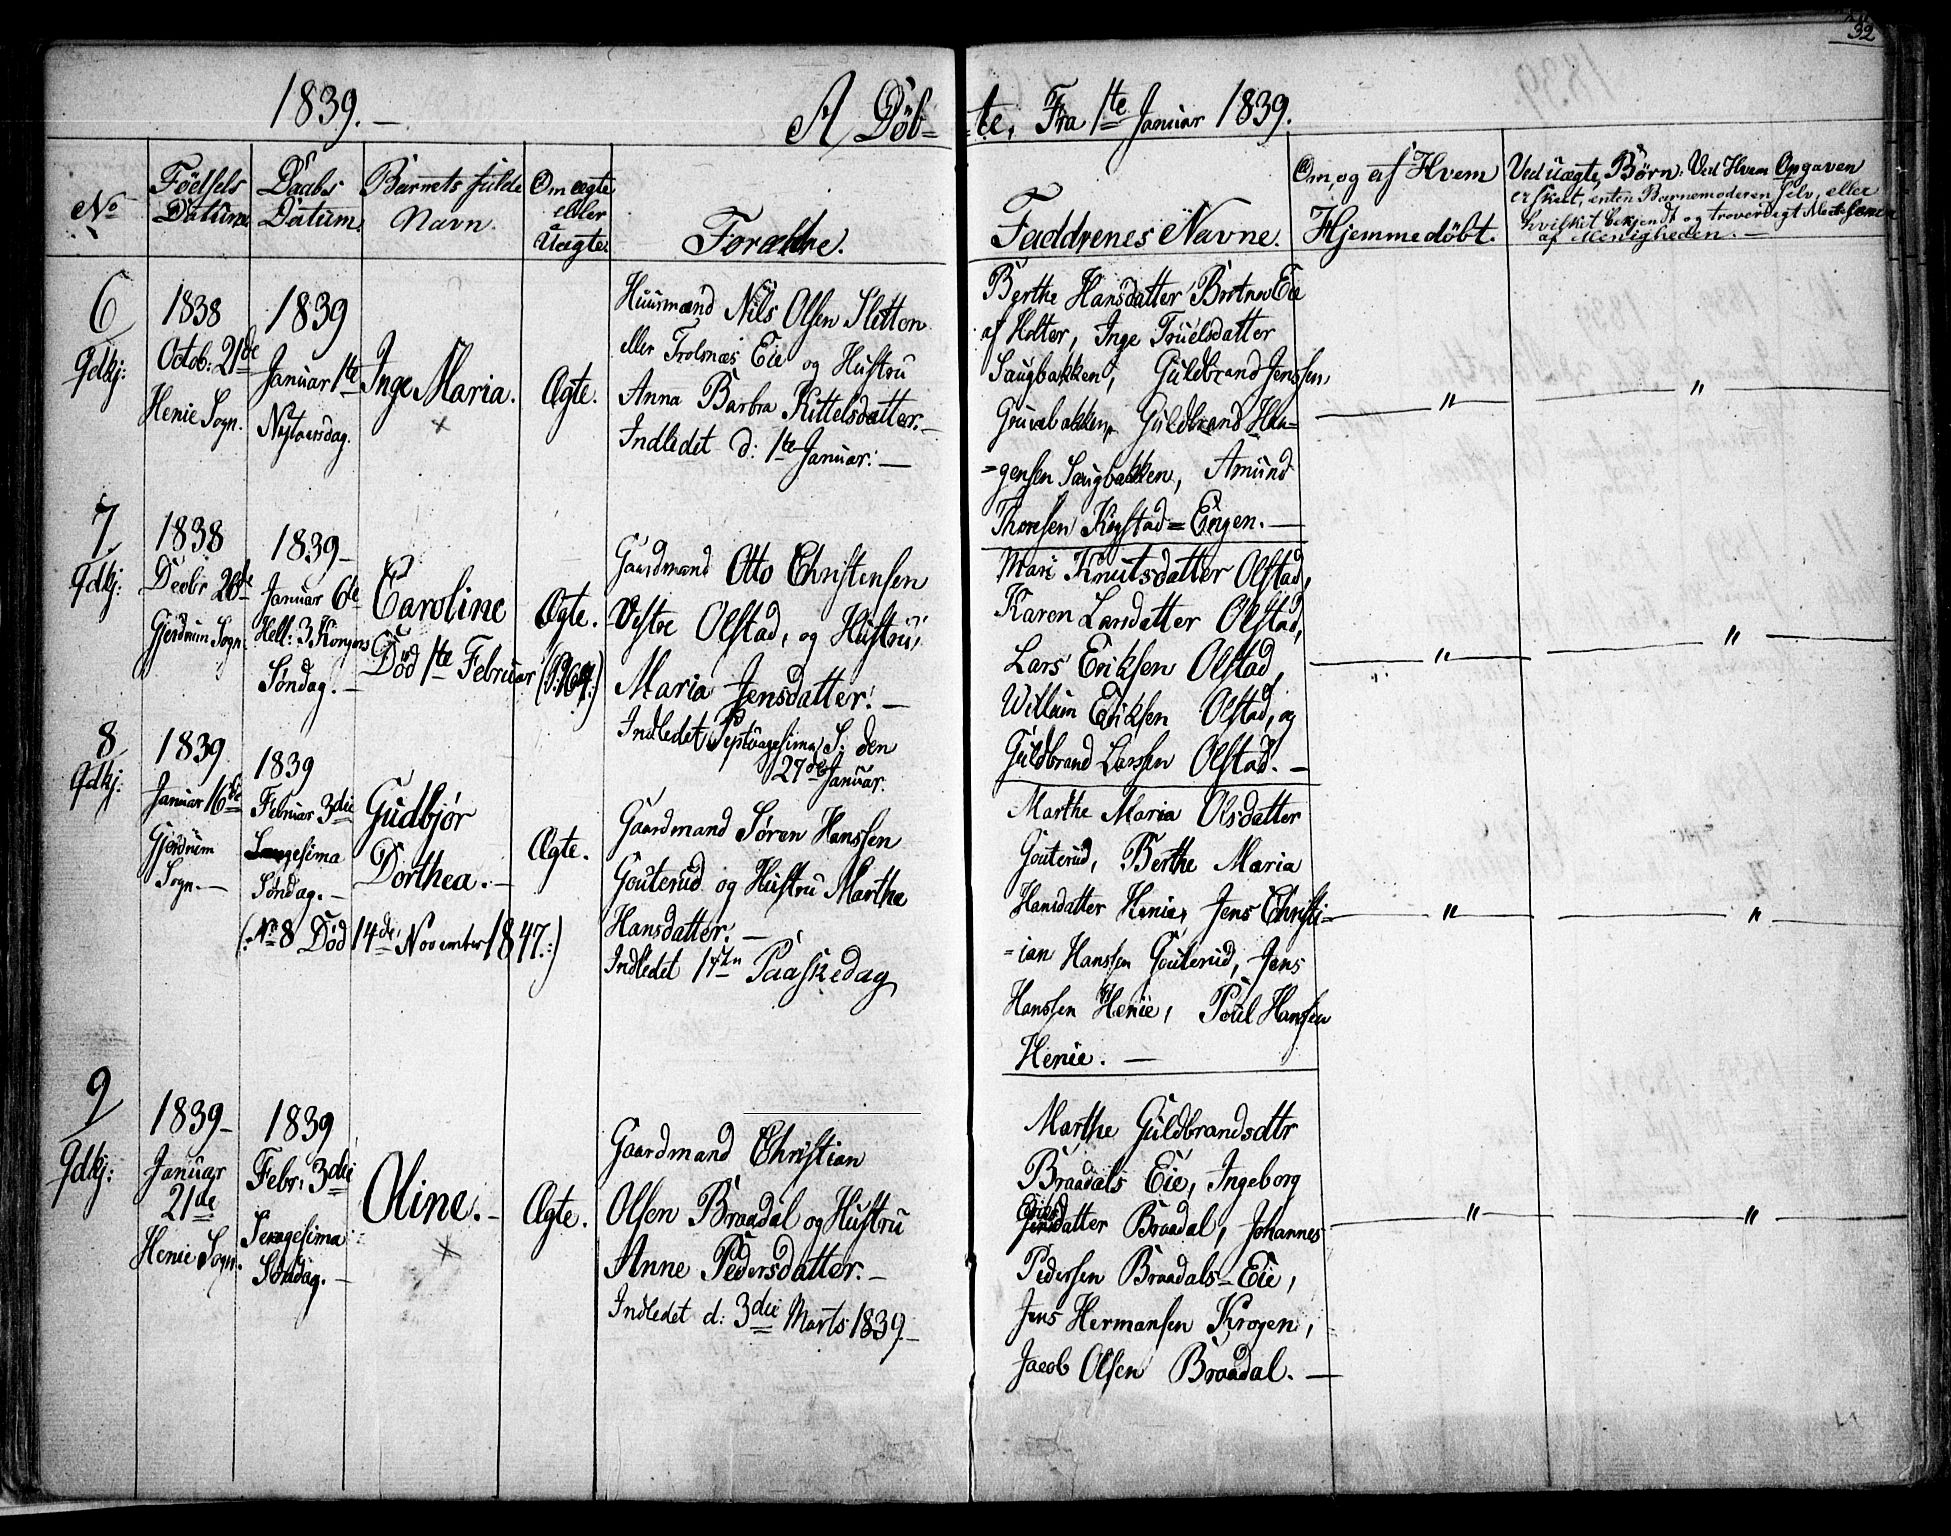 32
1839.
A Døb=
=te, Fra 1te Januar 1839.
No
Föelsels Datum
Daabs Datum.
Barnets fulde Navn.
Om ægte eller Uægte.
Forældre.
Faddrenes Navne.
Om, og af Hvem Hjemmedøbt.
Ved uægte Børn. Ved Hvem Opgaven
er skeet, enten Barnemoderen selv, eller
hvilket bekjendt og troværdigt Medlem
af Menigheden.
6
Gdkj:
1838
Octob: 21de
Henie Sogn.
1839
Januar 1te
Nytaarsdag.
Inge Maria.
×
Ægte.
Huusmænd Nils Olsen Sletten
eller Trolsnæs Eie og Hustru
Anna Barbra Kittelsdatter.
Indledet d: 1te Januar.
Berthe Hansdatter Brotnu Eie
af Holter, Inge Truelsdatter
Saugbakken, Guldbrand Jenssen
Gruvebakken, Guldbrand Haa=
=gensen Saugbakken, Amund
Thomsen Kogstad=Engen.
"
"
7.
Gdkj:
1838
Decbr 26de
Gjerdrum Sogn.
1839
Januar 6te
Hell: 3 Kongers
Søndag.
Caroline
Død 1te Februar
Ægte.
Gaardmand Otto Christensen
Vestre Olstad, og Hustru
Maria Jensdatter.
Indledet Septuagesima S. den
27de Januar.
Mari Knutsdatter Olstad,
Karen Larsdatter Olstad,
Lars Eriksen Olstad,
Willum Eriksen Olstad, og
Guldbrand Larssen Olstad.
"
"
8
Gdkj:
1839
Januar 16de
Gjerdrum
Sogn.
1839
Februar 3die
Søndag.
Gudbjør
Dorthea.
(: No 8 Død 14de November 1847.:)
Ægte.
Gaardmand Søren Hanssen
Gouterud og Hustru Marthe
Hansdatter.
Indledet 1ste Paaskedag
Marthe Maria Olsdatter
Gouterud, Berthe Maria
Hansdatter Henie, Jens Christi=
=ian Hanssen Gouterud, Jens
Hanssen Henie, Poul Hanssen
Henie.
"
"
9
Gdkj:
1839
Januar
21de
Henie Sogn.
1839
Febr: 3die
Sexagesima
Søndag.
Oline.
×
Ægte.
Gaardmand Christian
Olsen Braadal og Hustru
Anne Pedersdatter.
Indledet d: 3die Marts 1839.
Marthe Guldbrandsdtr
Braadals Eie, Ingeborg
datter Braadal, Johannes
Pedersen Braadals-Eie,
Jens Hermansen Krogen,
Jacob Olsen Braadal.
"
"